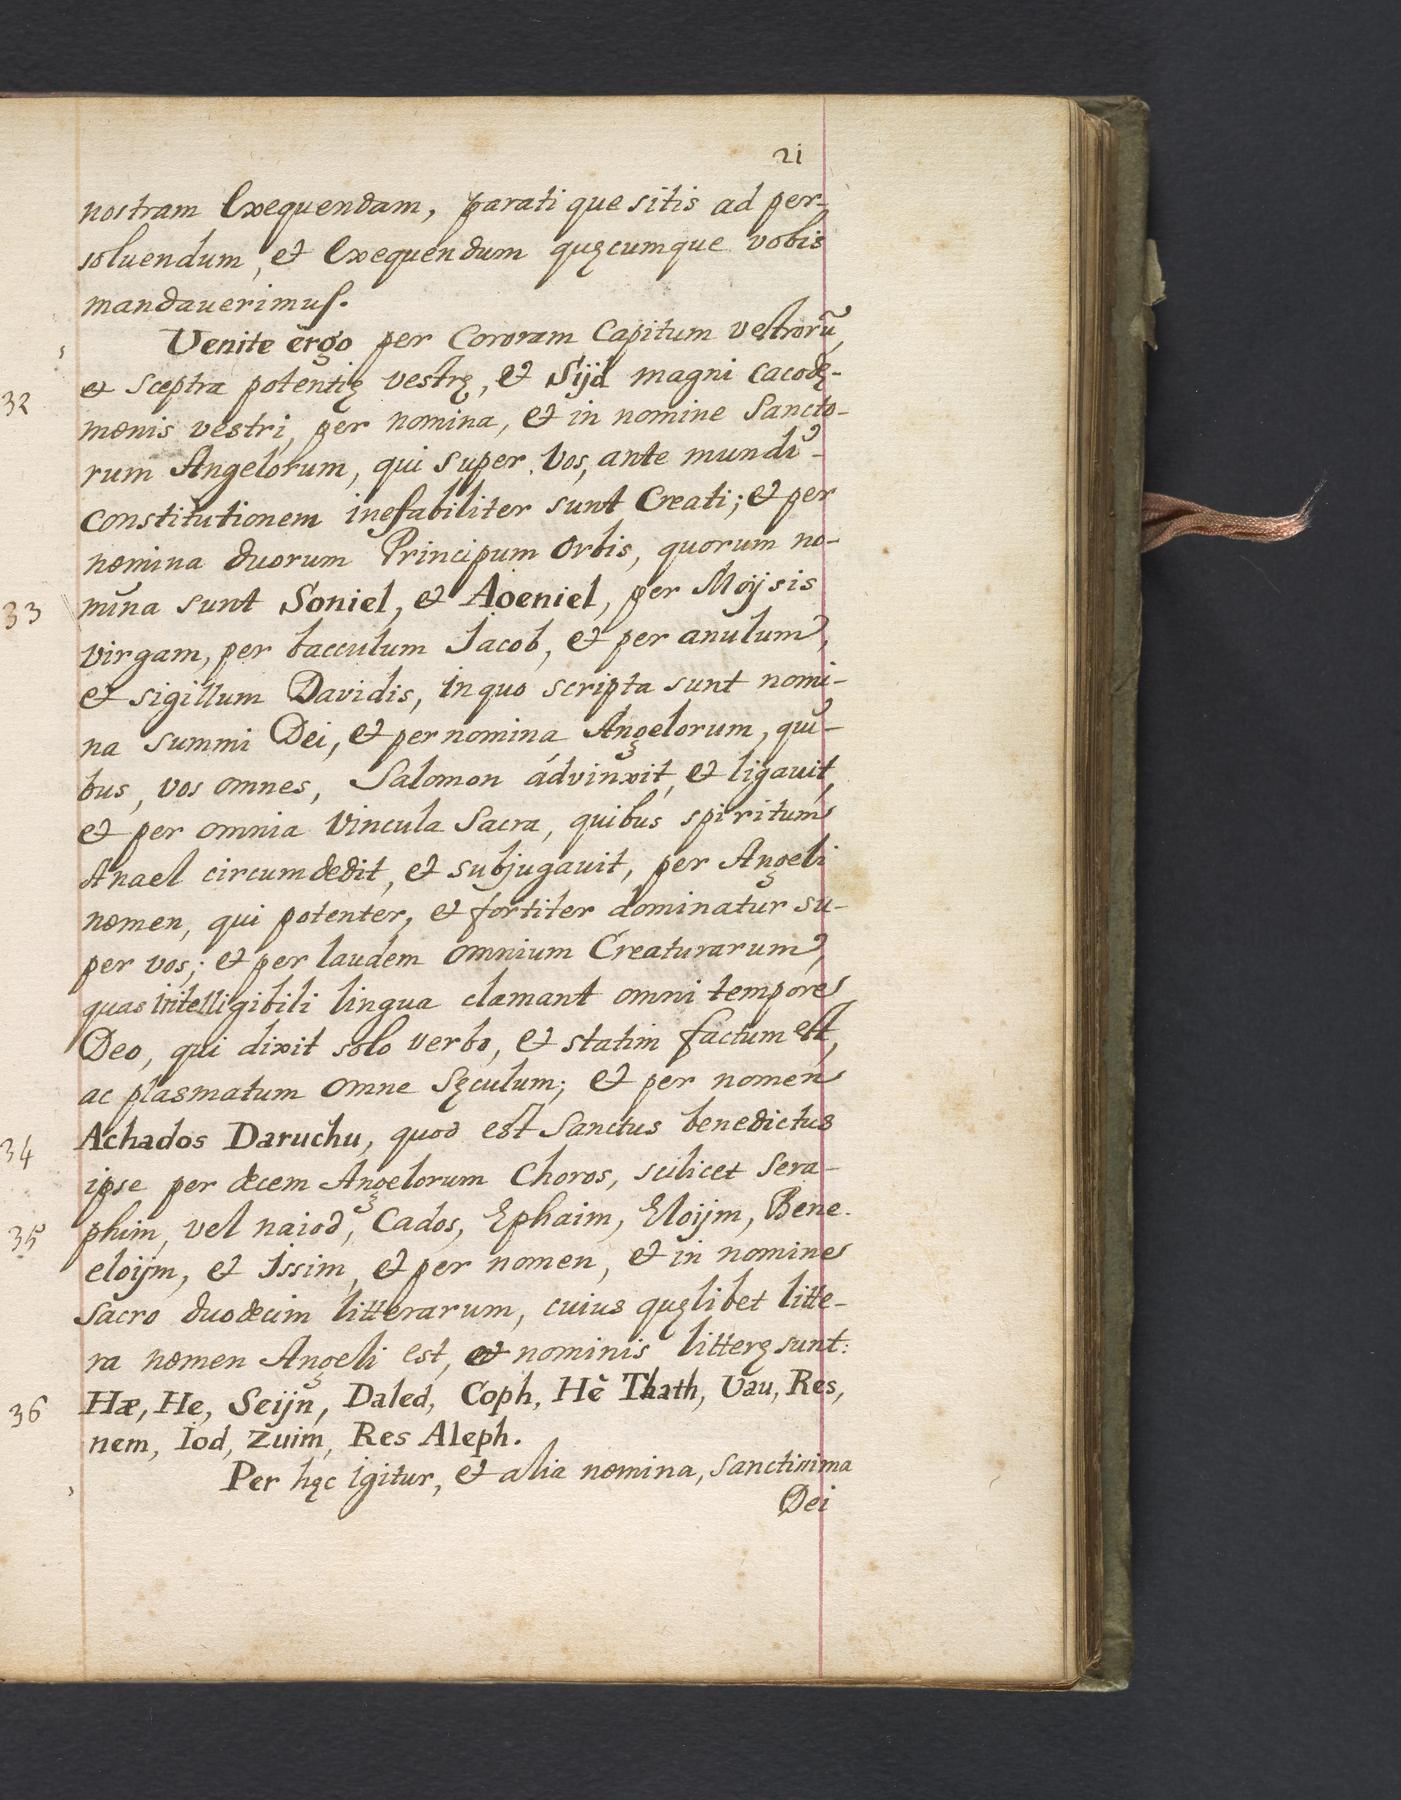 21
nostram Exequendam, parati que sitis ad per-
soluendum, et Exequendum quęcumque vobis
mandauerimus.
Venite ergo per Coronam Capitum vestrorũ,
32 et sceptra potentię vestrę, et Sijd magni cacodę-
monis vestri, per nomina, et in nomine Sancto-
rum Angelorum, qui super vos, ante mundi
constitutionem inefabiliter sunt Creati; et per
nomina duorum Principum Orbis, quorum no-
33 mina sunt Soniel, et Aoeniel, per Moijsis
virgam, per bacculum Jacob, et per anulum,
et sigillum Davidis, in quo scripta sunt nomi-
na summi Dei, et per nomina Angelorum, qui-
bus, vos omnes, Salomon advinxit, et ligauit,
et per omnia vincula Sacra, quibus spiritum
Anael circumdedit, et subjugauit, per Angeli
nomen, qui potenter, et fortiter dominatur su-
per vos; et per laudem omnium Creaturarum,
quas intelligibili lingua clamant omni tempore
Deo, qui dixit solo verbo, et statim factum est,
ac plasmatum omne Sęculum; et per nomen
34 Achados Daruchu, quod est Sanctus benedictus
ipse per decem Angelorum Choros, scilicet Sera-
35 phim, vel naiod, Cados, Ephaim, Eloijm, Bene.
eloijm, et Issim, et per nomen, et in nomine
Sacro duodecim litterarum, cuius quęlibet litte-
ra nomen Angeli est, et nominis litterę sunt:
36 Hæ, He, Seijn, Daled, Coph, Hè Thath, Vau, Res,
nem, Iod, Zuim, Res Aleph.
Per hęc igitur, et alia nomina, sanctissima
Dei